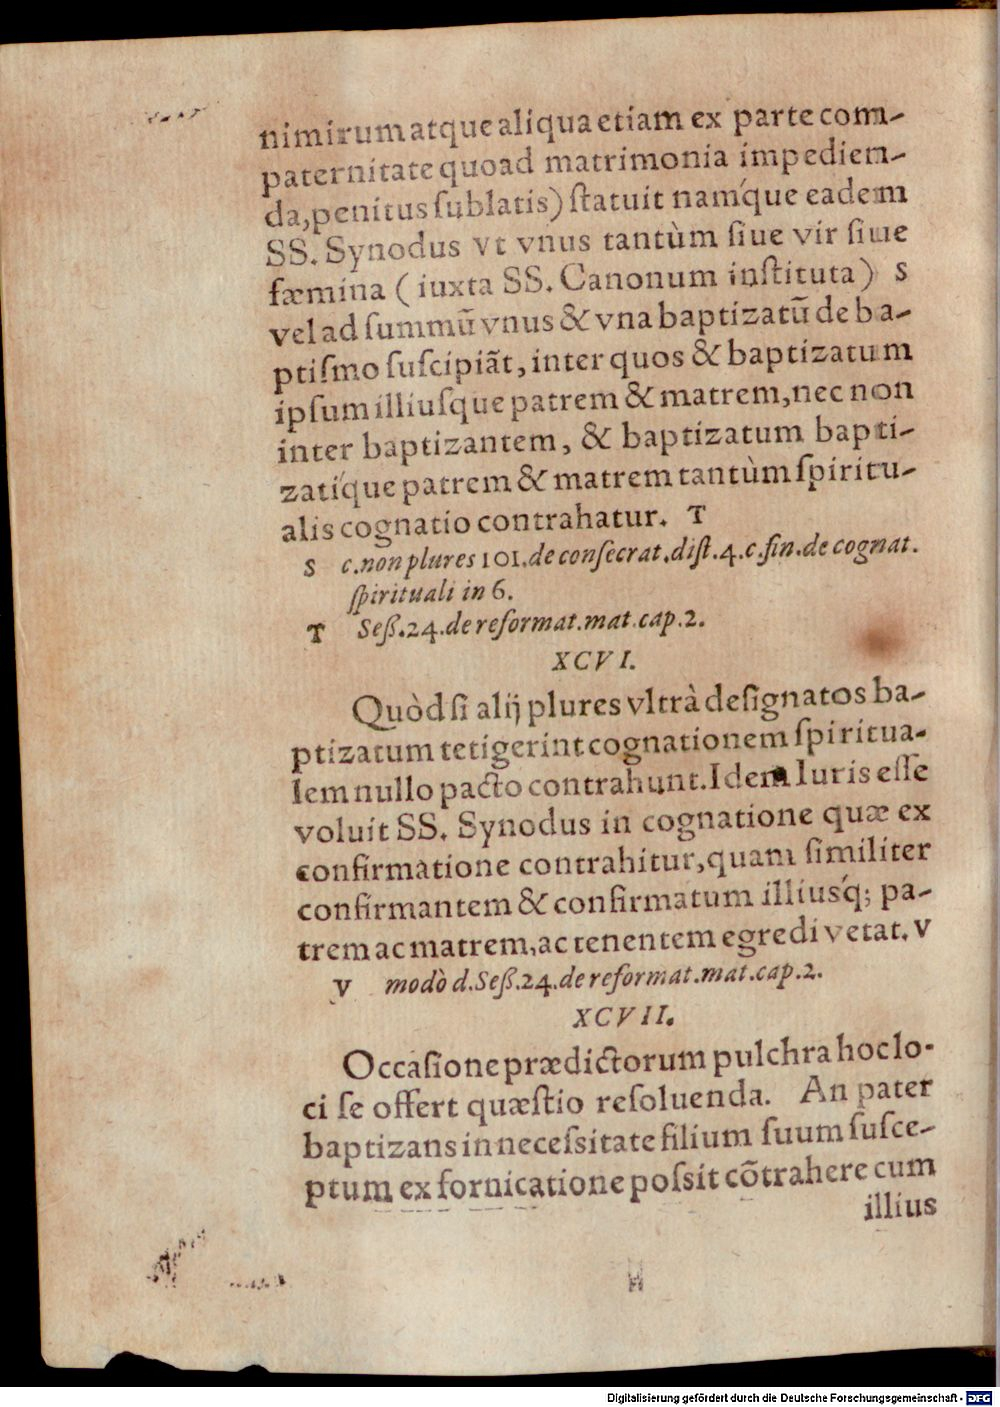 nimirum atque aliqua etiam ex parte com-
paternitate quoad matrimonia impedien-
da, penitus sublatis) ſtatuit namq́ue eadem
SS. Synodus vt vnus tantùm ſiue vir ſiue
fæmina (iuxta SS. Canonum inſtituta) S
vel ad ſummū vnus & vna baptizatū de ba-
ptiſmo ſuſcipiāt, inter quos & baptizatum
ipſum illiuſque patrem & matrem, nec non
inter baptizantem, & baptizatum bapti-
zatiq́ue patrem & matrem tantùm ſpiritu-
alis cognatio contrahatur. T
S c. non plures 101. de conſecrat. diſt. 4. c. fin. de cognat.
ſpirituali in 6.
T Seß. 24. de reformat. mat. cap. 2.
XCVI.
Quòd ſi alij plures vltrà deſignatos ba-
ptizatum tetigerint cognationem ſpiritua-
lem nullo pacto contrahunt. Idem Iuris eſſe
voluit SS. Synodus in cognatione quæ ex
confirmatione contrahitur, quam ſimiliter
confirmantem & confirmatum illiusq́; pa-
trem ac matrem, ac tenentem egredi vetat. V
V modò d. Seß. 24. de reformat. mat. cap. 2.
XCVII.
Occaſione prædictorum pulchra hoc lo-
ci ſe offert quæſtio reſoluenda. An pater
baptizans in neceſsitate filium ſuum ſuſce-
ptum ex fornicatione poſsit cōtrahere cum
illius
Digitalisierung gefördert durch die Deutsche Forschungsgemeinschaft - DFG